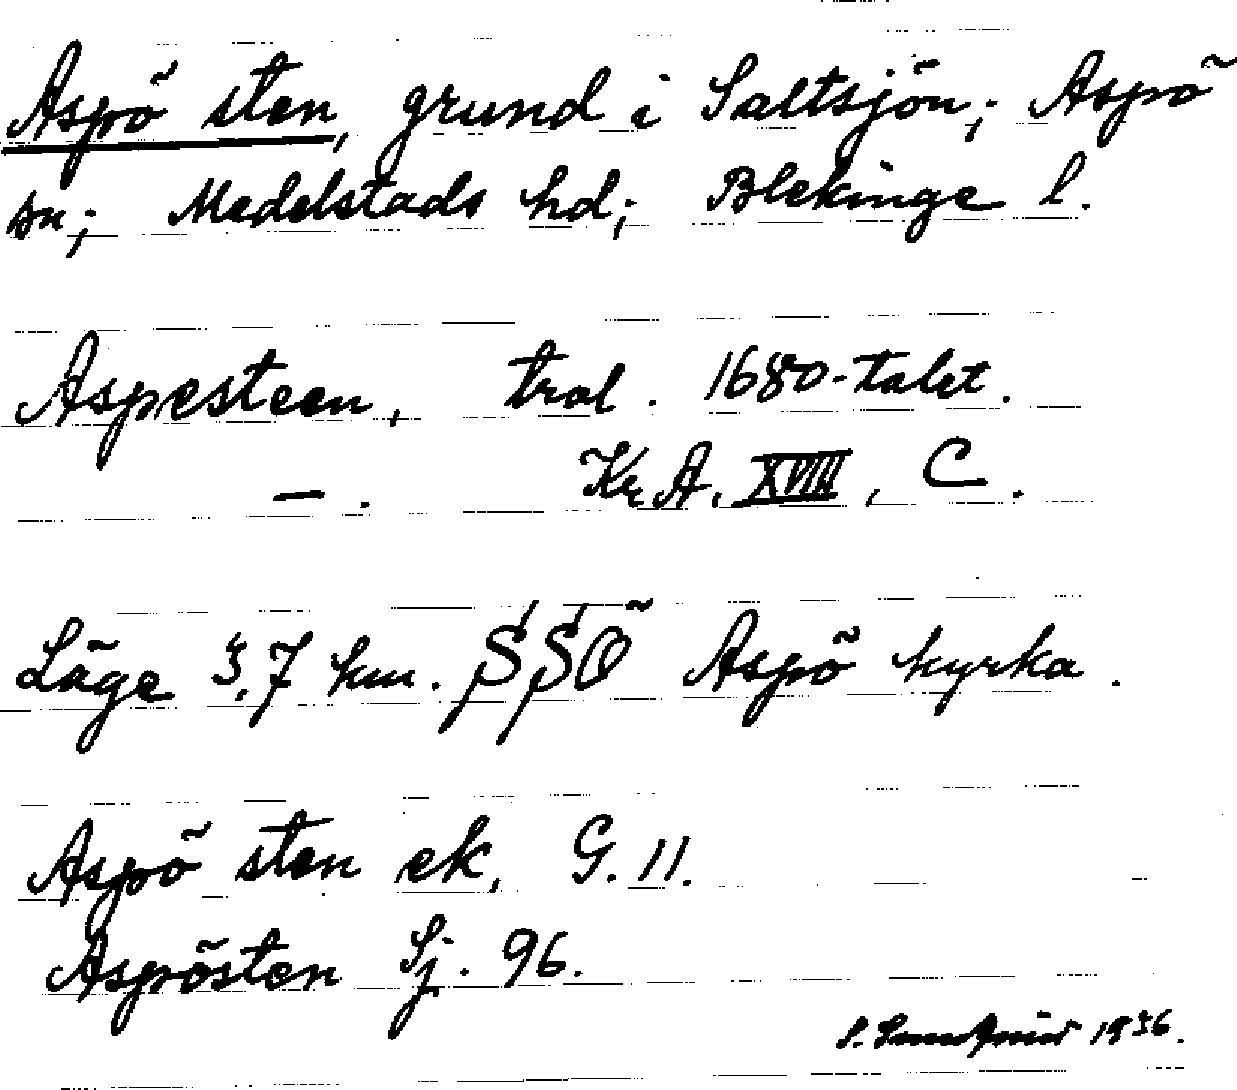 Aspö sten, grund i Saltsjön; Aspö
sn; Medelstads hd; Blekinge l.
Aspesteen, trol. 1680-talet.
— . KrA. XVIII, C.
Läge 3,7 km. SSÖ Aspö kyrka.
Aspö sten ek, G. 11.
Aspösten Sj. 96.
1936.